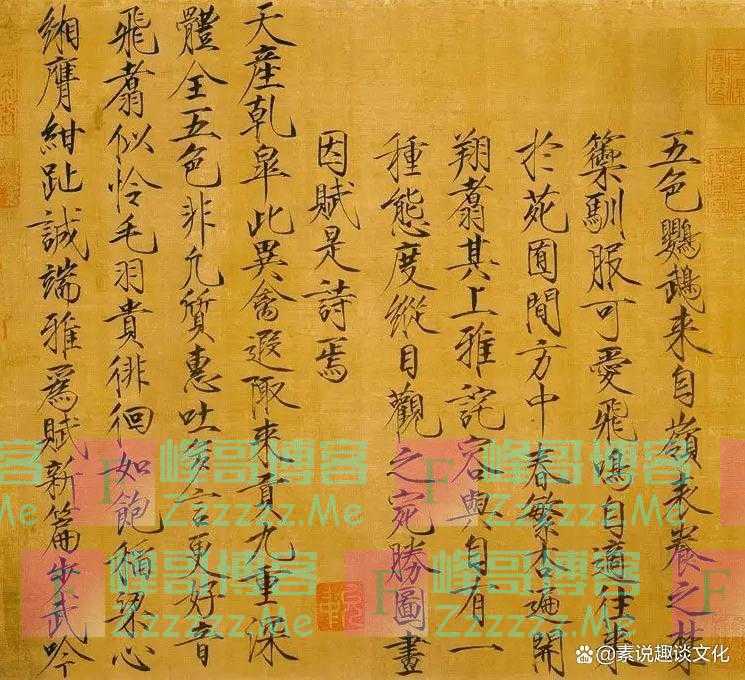 五色鸚鵡来自嶺表養之禁
籞馴服可愛飛鳴自適往来
於苑囿間方中春繁杏遍開
翔翥其上雅詫容與自有一
種態度縱目觀之宛勝圖畫
因賦是詩焉
天産乾皐此異禽遐陬来貢九重深
體全五色非凡質惠吐多言更好音
飛翥似怜毛羽貴徘徊如飽稲粱心
緗膺紺趾誠端雅爲賦新篇步武吟
F 峰哥博客
Zzzzzz.Me
F 峰哥博客
Zzzzzz.Me
F 峰哥博客
Zzzzzz.Me
F 峰哥博客
Zzzzzz.Me
@素说趣谈文化